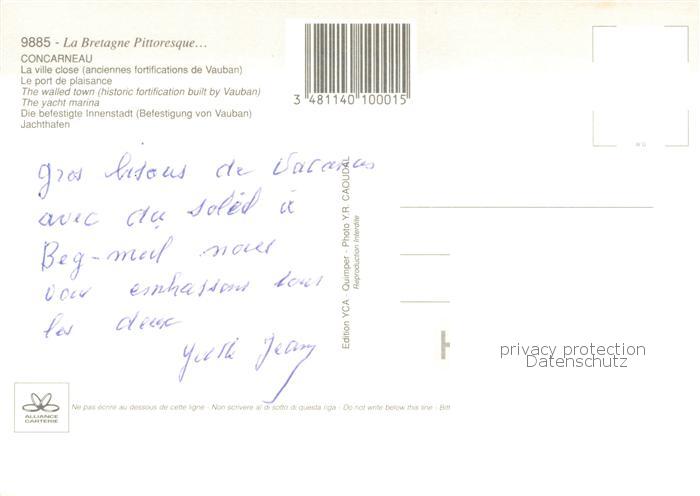 9885 - La Bretagne Pittoresque...
CONCARNEAU
La ville close (anciennes fortifications de Vauban)
Le port de plaisance
The walled town (historic fortification built by Vauban)
The yacht marina
Die befestigte Innenstadt (Befestigung von Vauban)
Jachthafen
3 481140 100015
gros bisous de Vacances
avec du soleil à
Beg-meil nous
vous embrassons tous
les deux
Yvette Jean
Edition YCA - Quimper - Photo Y.R. CAOUDAL
Reproduction Interdite
privacy protection
Datenschutz
ALLIANCE
CARTERIE
Ne pas écrire au dessous de cette ligne - Non scrivere al di sotto di questa riga - Do not write below this line - Bitt